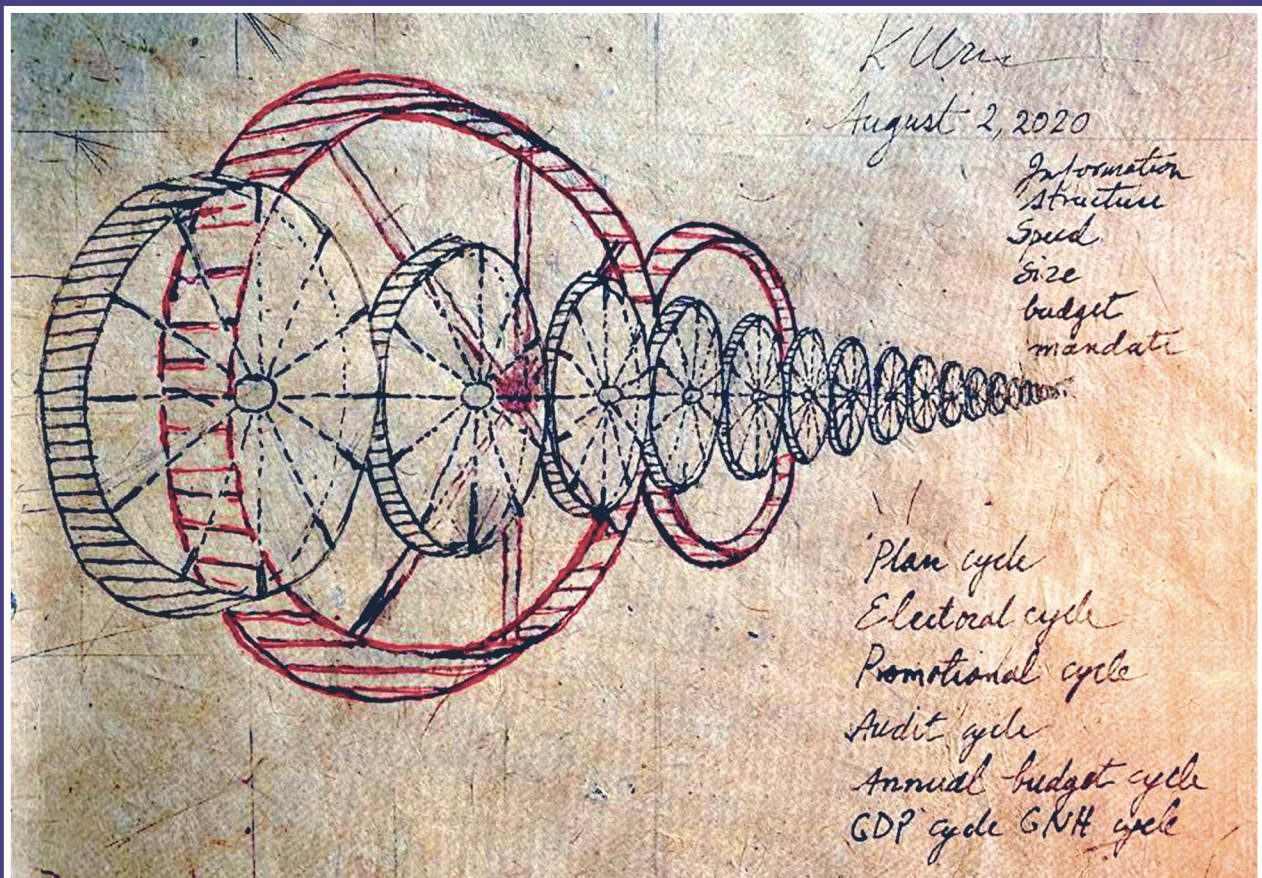 K Ura
August 2, 2020
Information
structure
Speed
Size
budget
mandate
Plan cycle
Electoral cycle
Promotional cycle
Audit cycle
Annual budget cycle
GDP cycle GNH cycle